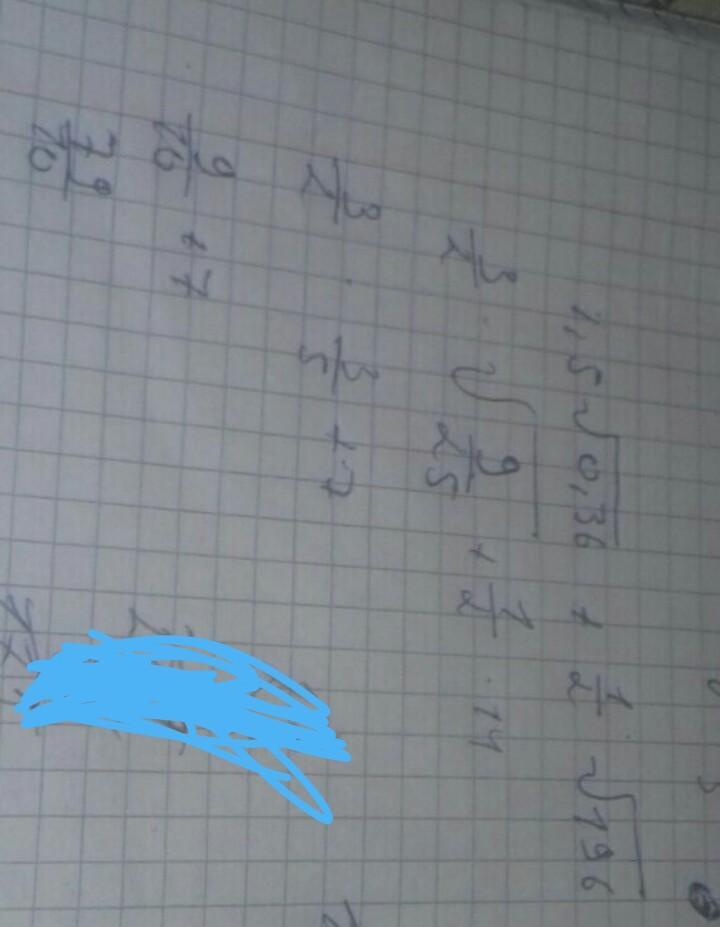 1,5√0,36 + 1/2 · √196
3/2 · √9/25 + 1/2 · 14
3/2 · 3/5 + 7
9/10 + 7
7 9/10